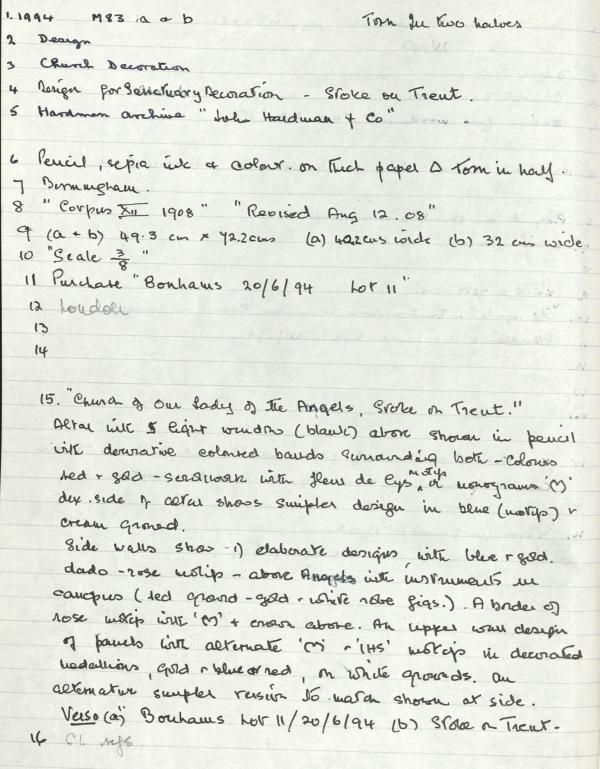 1. 1994 M83 : a + b Torn in two halves
2 Design
3 Church Decoration
4 Design for Sanctuary Decoration - Stoke on Trent.
5 Hardman archive "John Hardman & Co"
6 Pencil, sepia ink & colour. on thick paper Δ torn in half.
7 Birmingham.
8 "Corpus XII 1908" "Revised Aug 12. 08"
9 (a + b) 49.3 cm x 72.2cms (a) 40.2cms wide (b) 32 cms wide
10 "Scale 3/8"
11 Purchase "Bonhams 20/6/94 Lot 11"
12 London
13
14
15. "Church of Our Lady of the Angels, Stoke on Trent."
Altar with 5 light window (blank) above shown in pencil
with decorative coloured bands surrounding both - colours
red + gold - scrollwork with fleur de lys motifs or monograms 'M'
dex. side of altar shows simpler design in blue (motifs) +
cream ground.
Side walls show - 1) elaborate designs, with blue + gold.
dado - rose motif - above Angels with instruments in
canopies (red ground - gold + white robe figs.). A border of
rose motif with 'M' + crown above. An upper wall design
of panels with alternate 'M' + 'IHS' motifs in decorated
medallions, gold + blue or red, on white grounds. An
alternative simpler version to match shown at side.
Verso (a) Bonhams Lot 11/20/6/94 (b) Stoke on Trent -
16 CL refs